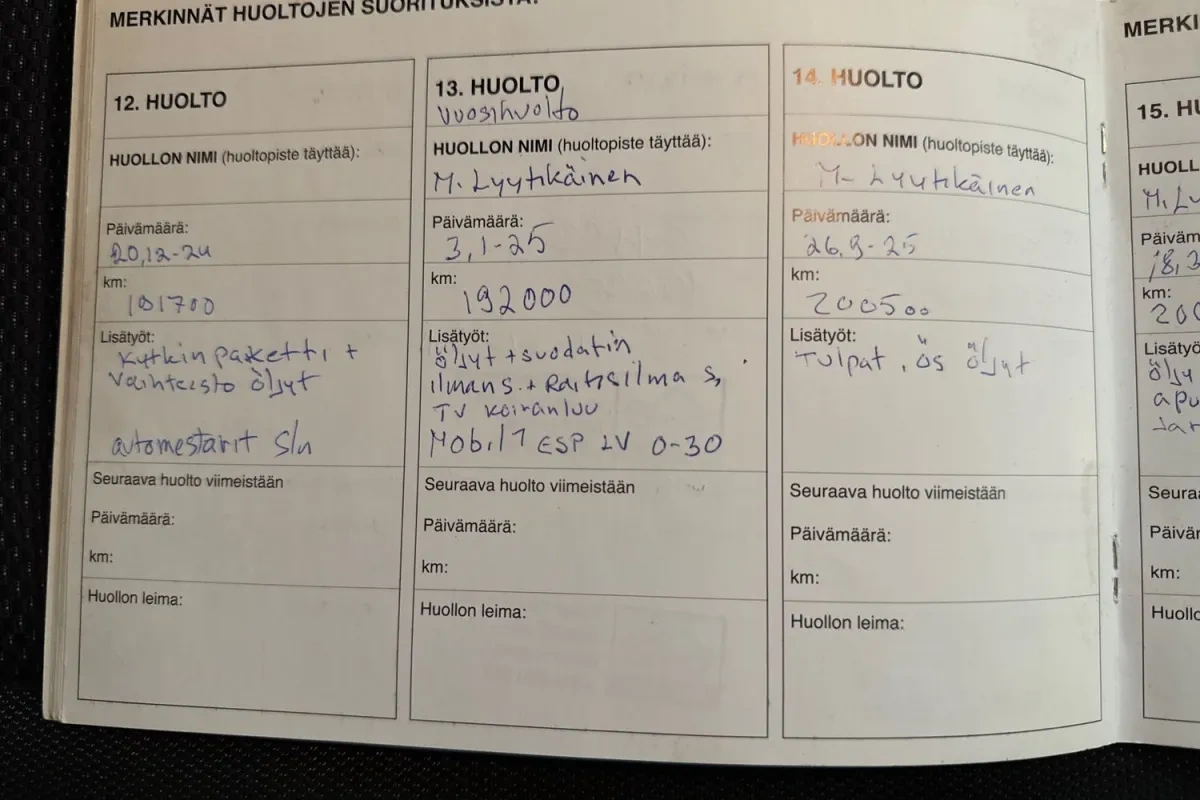 MERKINNÄT HUOLTOJEN SUORITUKSISTA:
12. HUOLTO
HUOLLON NIMI (huoltopiste täyttää):
Päivämäärä:
20,12-24
km:
191700
Lisätyöt:
Kytkinpaketti +
Vaihteisto öljyt
automestarit S/n
Seuraava huolto viimeistään
Päivämäärä:
km:
Huollon leima:
13. HUOLTO
Vuosihuolto
HUOLLON NIMI (huoltopiste täyttää):
M. Lyytikäinen
Päivämäärä:
3,1-25
km:
192000
Lisätyöt:
öljyt + suodatin
ilmans. + Raitisilma s,
TV koiranluu
Mobil 1 ESP LV 0-30
Seuraava huolto viimeistään
Päivämäärä:
km:
Huollon leima:
14. HUOLTO
HUOLLON NIMI (huoltopiste täyttää):
M- Lyytikäinen
Päivämäärä:
26.9-25
km:
200500
Lisätyöt:
Tulpat, ös öljyt
Seuraava huolto viimeistään
Päivämäärä:
km:
Huollon leima:
MERKI
15. HU
HUOLL
M. Ly
Päiväm
18,3
km:
200
Lisätyö
öljy
apu
Seuraa
Päivär
km:
Huollo